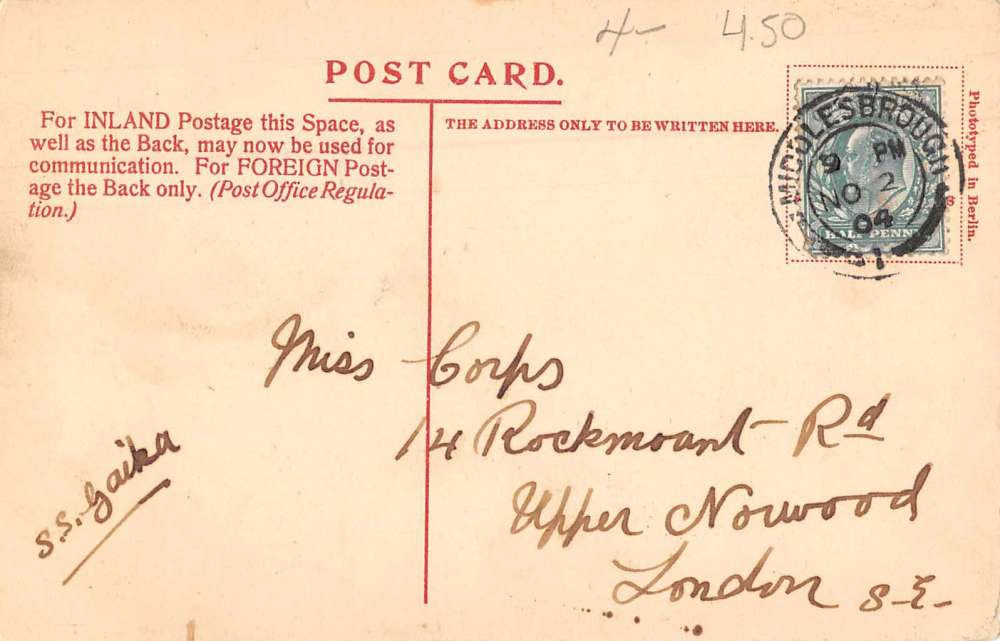 4- 4.50
POST CARD.
For INLAND Postage this Space, as
well as the Back, may now be used for
communication. For FOREIGN Post-
age the Back only. (Post Office Regula-
tion.)
THE ADDRESS ONLY TO BE WRITTEN HERE.
MIDDLESBROUGH
9 PM
NO 2
04
HALF PENNY
Phototyped in Berlin.
Miss Corps
14 Rockmount Rd
Upper Norwood
London S.E.
S.S. Gaika